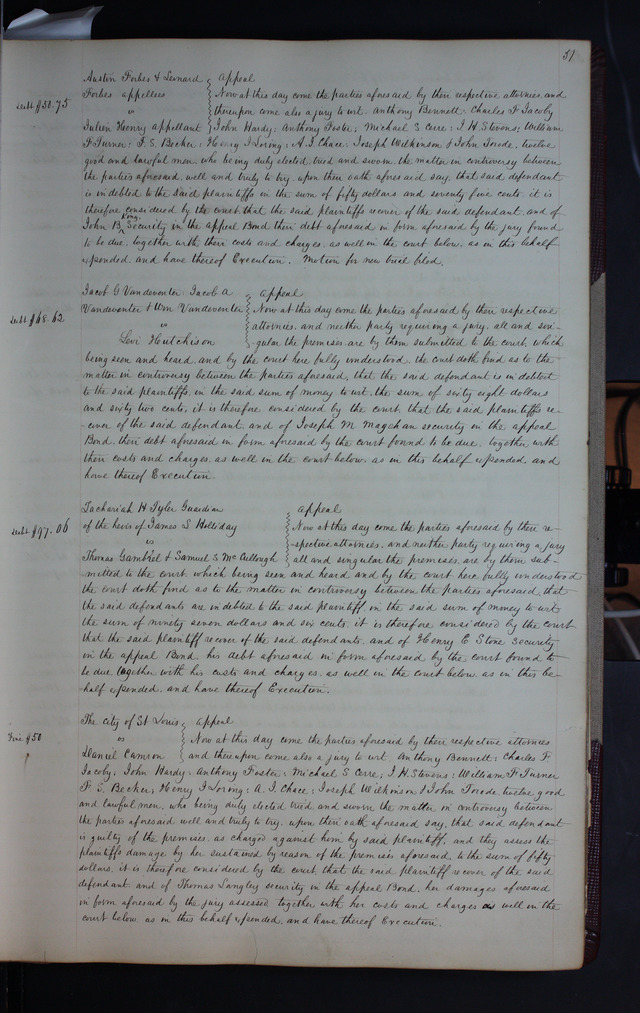 57
Austin Forbes & Leonard } Appeal
debt $50.75 Forbes appellees } Now at this day come the parties aforesaid by their respective attornies, and
vs } thereupon come also a jury to wit: Anthony Bennett: Charles F Jacoby
Julein Henry appellant } John Hardy: Anthony Foster: Michael S Cerre: J H Stevens: William
F Turner: F. S. Becker: Henry J Loring: A. J. Chace: Joseph Wilkinson & John Torode, twelve
good and lawful men, who being duly elected tried and sworn the matter in controversy between
the parties aforesaid well and truly to try, upon their oath aforesaid say, that said defendant
is indebted to the said plaintiffs in the sum of fifty dollars and seventy five cents. it is
therefore considered by the court that the said plaintiffs recover of the said defendant and of
John B Security in the appeal Bond their debt aforesaid in form aforesaid by the jury found
to be due, together with their costs and charges, as well in the court below, as in this behalf
expended, and have thereof Execution. Motion for new trial filed.
Jacob G Vandeventer: Jacob A } appeal
debt $68.62 Vandeventer & Wm Vandeventer } Now at this day come the parties aforesaid by their respective
vs } attornies, and neither party requiring a jury, all and sin-
Levi Hutchison } gular the premises are by them submitted to the court, which
being seen and heard, and by the court here fully understood, the court doth find as to the
matter in controversy between the parties aforesaid, that the said defendant is indebted
to the said plaintiffs, in the said sum of money to wit, the sum of sixty eight dollars
and sixty two cents, it is therefore considered by the court, that the said plaintiffs re-
cover of the said defendant, and of Joseph M Magehan security in the appeal
Bond, their debt aforesaid in form aforesaid by the court found to be due, together with
their costs and charges, as well in the court below, as in this behalf expended, and
have thereof Execution.
Zachariah H Tyler Guardian } appeal
debt $97.06 of the heirs of James S Holliday } Now at this day come the parties aforesaid by their re-
vs } spective attornies, and neither party requiring a jury
Thomas Gambriel & Samuel S McCullough } all and singular the premises, are by them sub-
mitted to the court, which being seen and heard and by the court here fully understood
the court doth find as to the matter in controversy between the parties aforesaid, that
the said defendants are indebted to the said plaintiff in the said sum of money to wit
the sum of ninety seven dollars and six cents: it is therefore considered by the court
that the said plaintiff recover of the said defendants, and of Henry C Stone security
in the appeal Bond, his debt aforesaid in form aforesaid by the court found to
be due together with his costs and charges, as well in the court below as in this be-
half expended, and have thereof Execution.
The city of St Louis } appeal
Fine $50 vs } Now at this day come the parties aforesaid by their respective attornies
Daniel Camron } and thereupon come also a jury to wit, Anthony Bennett: Charles F.
Jacoby: John Hardy: Anthony Foster: Michael S Cerre; J. H. Stevens: William F Turner
F. S. Becker, Henry J Loring: A. J. Chace: Joseph Wilkinson & John Torode, twelve good
and lawful men, who being duly elected tried, and sworn the matter, in controversy between
the parties aforesaid well and truly to try, upon their oath aforesaid say, that said defendant
is guilty of the premises as charged against him by said plaintiff, and they assess the
plaintiffs damage by her sustained by reason of the premises aforesaid, to the sum of fifty
dollars, it is therefore considered by the court, that the said plaintiff recover of the said
defendant and of Thomas Langley security in the appeal Bond, her damages aforesaid
in form aforesaid by the jury assessed together with her costs and charges as well in the
court below as in this behalf expended, and have thereof Execution.